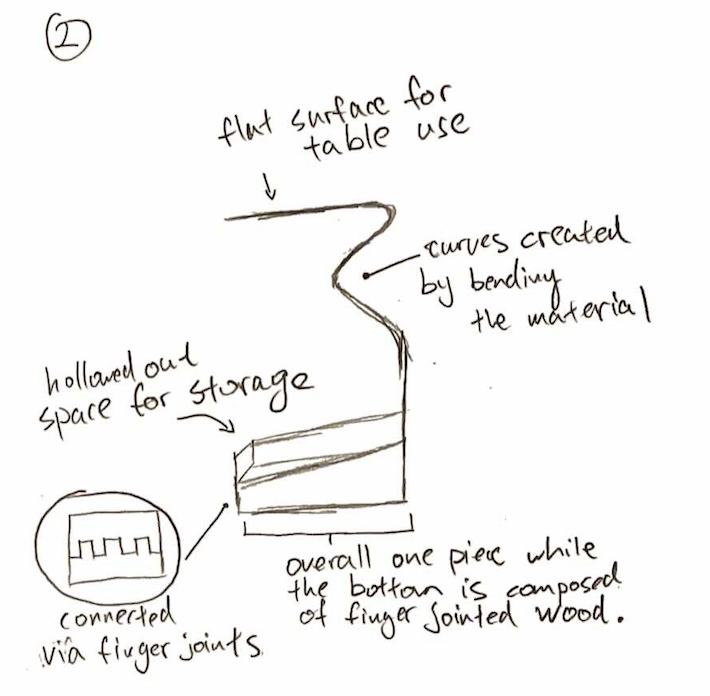 2
flat surface for
table use
curves created
by bending
the material
hollowed out
space for storage
connected
via finger joints.
overall one piece while
the bottom is composed
of finger jointed wood.